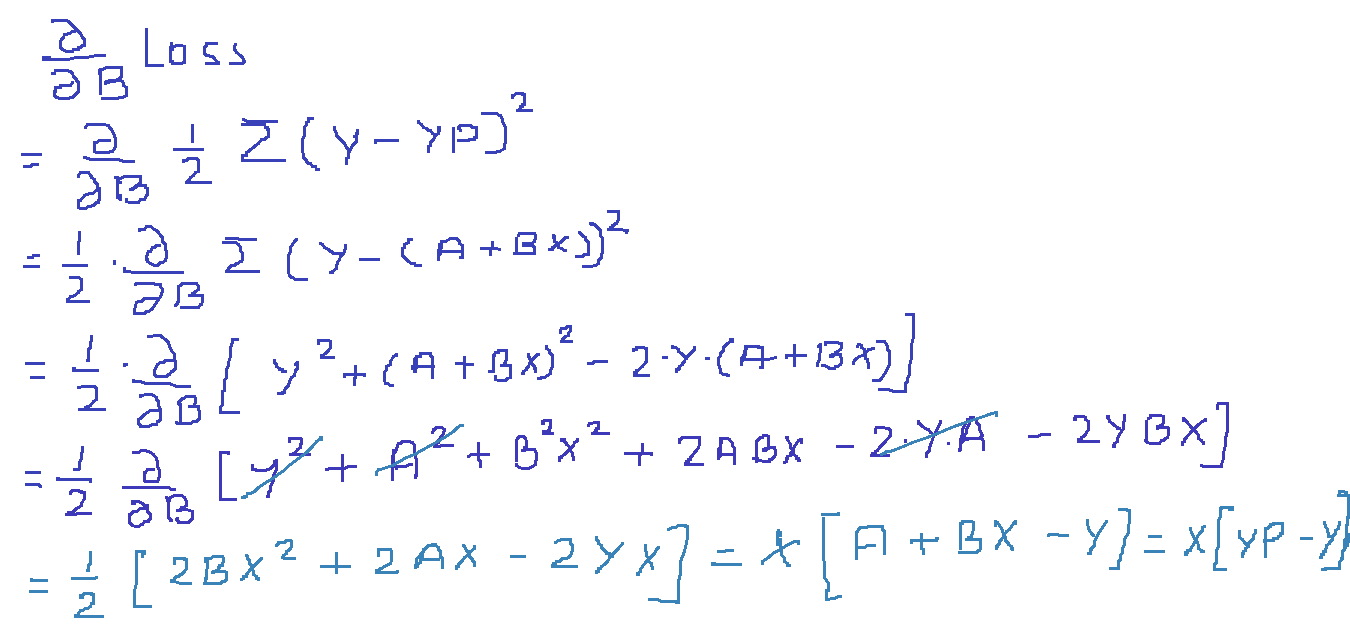 ∂/∂B Loss
= ∂/∂B 1/2 Σ(Y - YP)²
= 1/2 · ∂/∂B Σ (Y - (A + BX))²
= 1/2 · ∂/∂B [ Y² + (A + BX)² - 2·Y·(A + BX)]
= 1/2 ∂/∂B [Y² + A² + B²X² + 2ABX - 2·Y·A - 2YBX]
= 1/2 [2BX² + 2AX - 2YX] = X[A + BX - Y] = X[YP - Y]